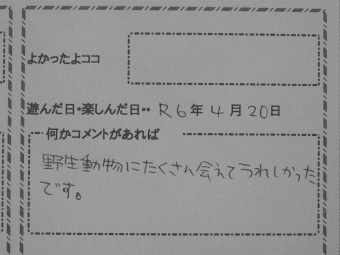 よかったよココ
遊んだ日・楽しんだ日・・ R6年4月20日
何かコメントがあれば
野生動物にたくさん会えてうれしかった
です。